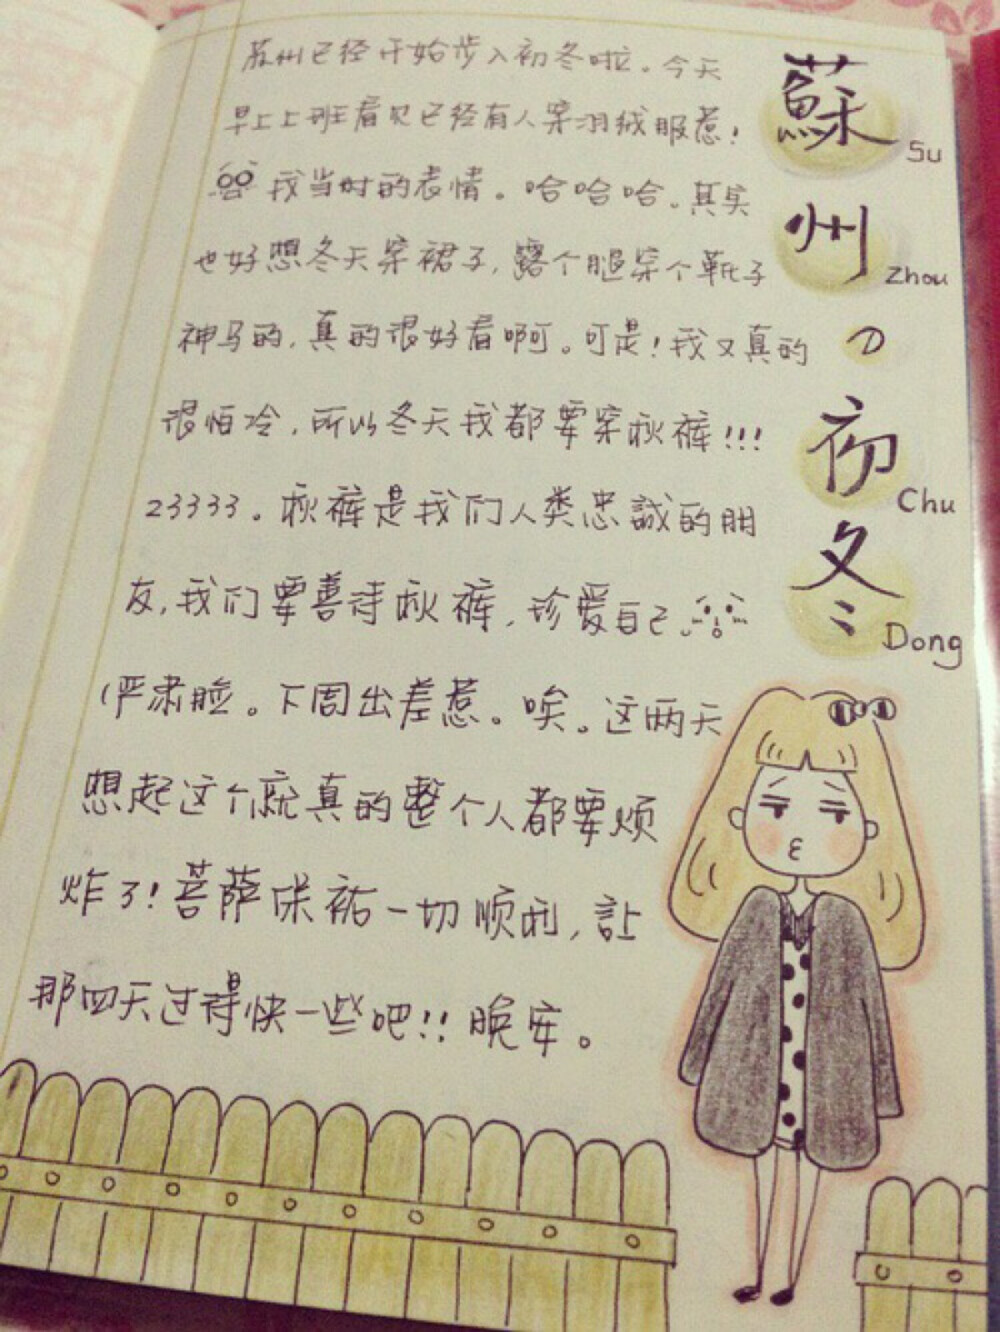 苏州已经开始步入初冬啦。今天
早上上班看见已经有人穿羽绒服惹！
我当时的表情。哈哈哈。其实
也好想冬天穿裙子，露个腿穿个靴子
神马的，真的很好看啊。可是！我又真的
很怕冷，所以冬天我都要穿秋裤!!!
23333。秋裤是我们人类忠誠的朋
友，我们要善待秋裤，珍爱自己
(严肃脸。下周出差惹。唉。这两天
想起这个就真的整个人都要烦
炸了！菩萨保祐一切顺利，让
那四天过得快一些吧!! 晚安。
蘇 Su
州 Zhou
の
初 Chu
冬 Dong